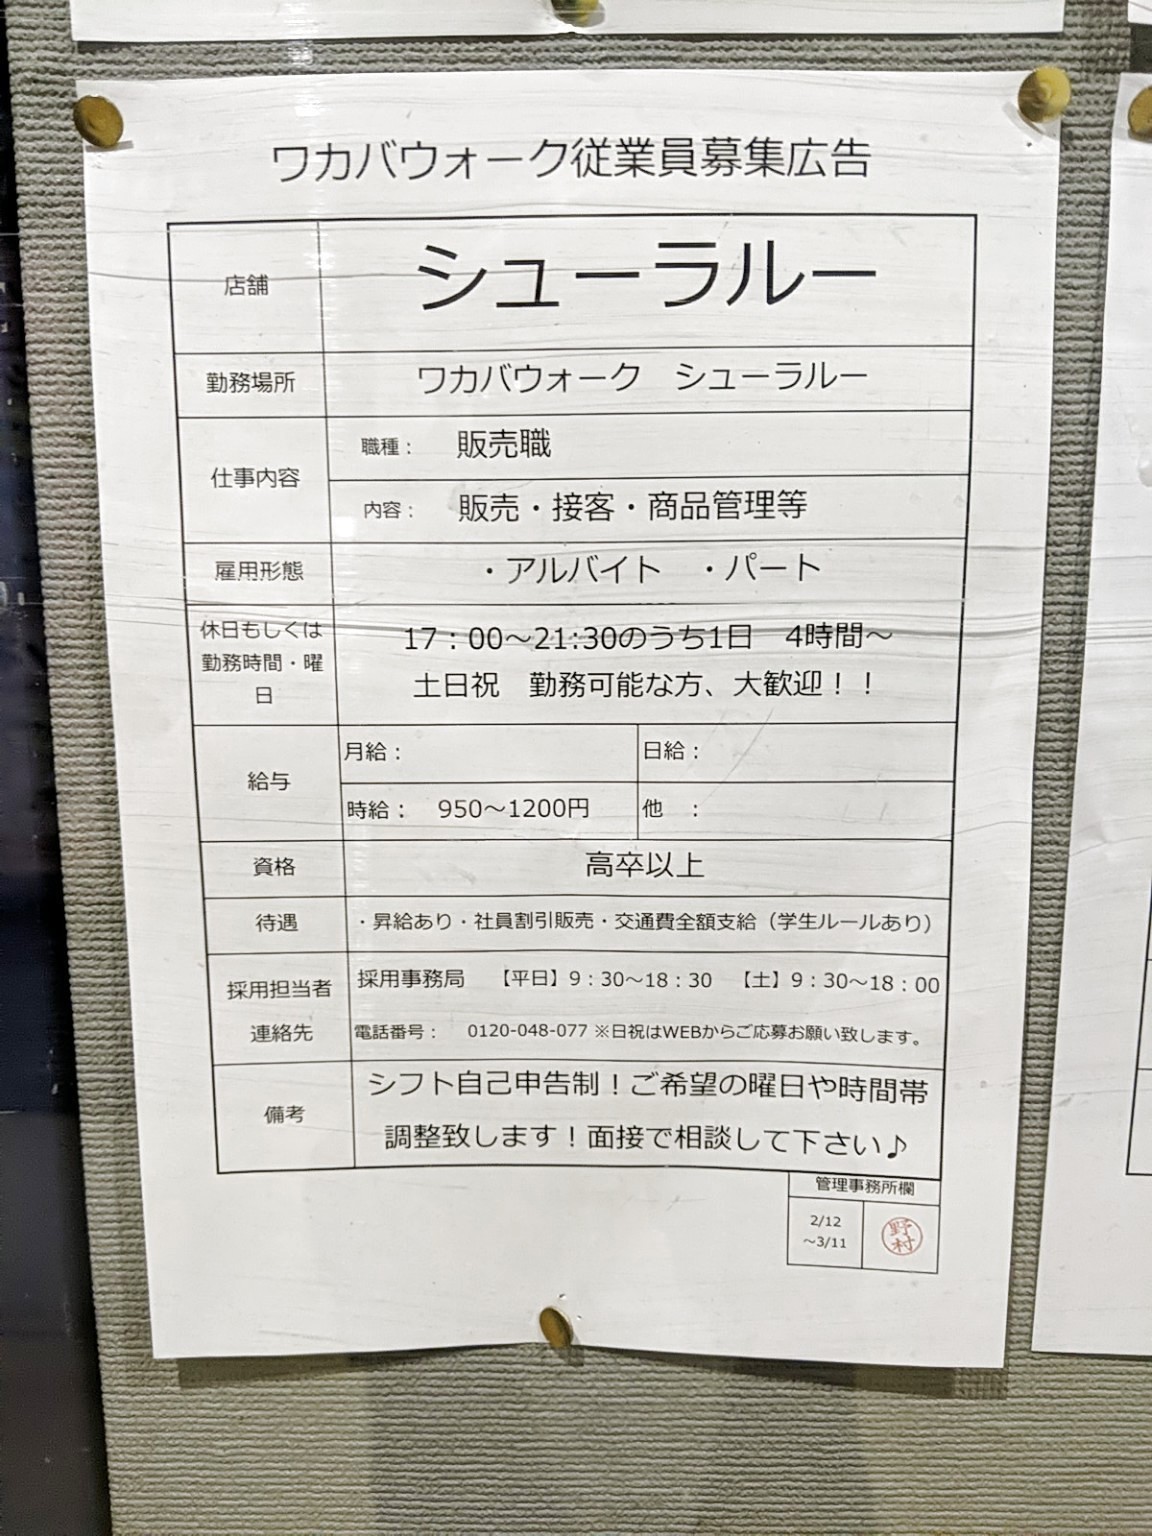 ワカバウォーク従業員募集広告
店舗
シューラルー
勤務場所
ワカバウォーク　シューラルー
仕事内容
職種：　販売職
内容：　販売・接客・商品管理等
雇用形態
・アルバイト　・パート
休日もしくは
勤務時間・曜
日
17：00～21:30のうち1日　4時間～
土日祝　勤務可能な方、大歓迎！！
給与
月給：
日給：
時給：　950～1200円
他　：
資格
高卒以上
待遇
・昇給あり・社員割引販売・交通費全額支給（学生ルールあり）
採用担当者
連絡先
採用事務局　【平日】9：30～18：30　【土】9：30～18：00
電話番号：　0120-048-077 ※日祝はWEBからご応募お願い致します。
備考
シフト自己申告制！ご希望の曜日や時間帯
調整致します！面接で相談して下さい♪
管理事務所欄
2/12
～3/11
野村